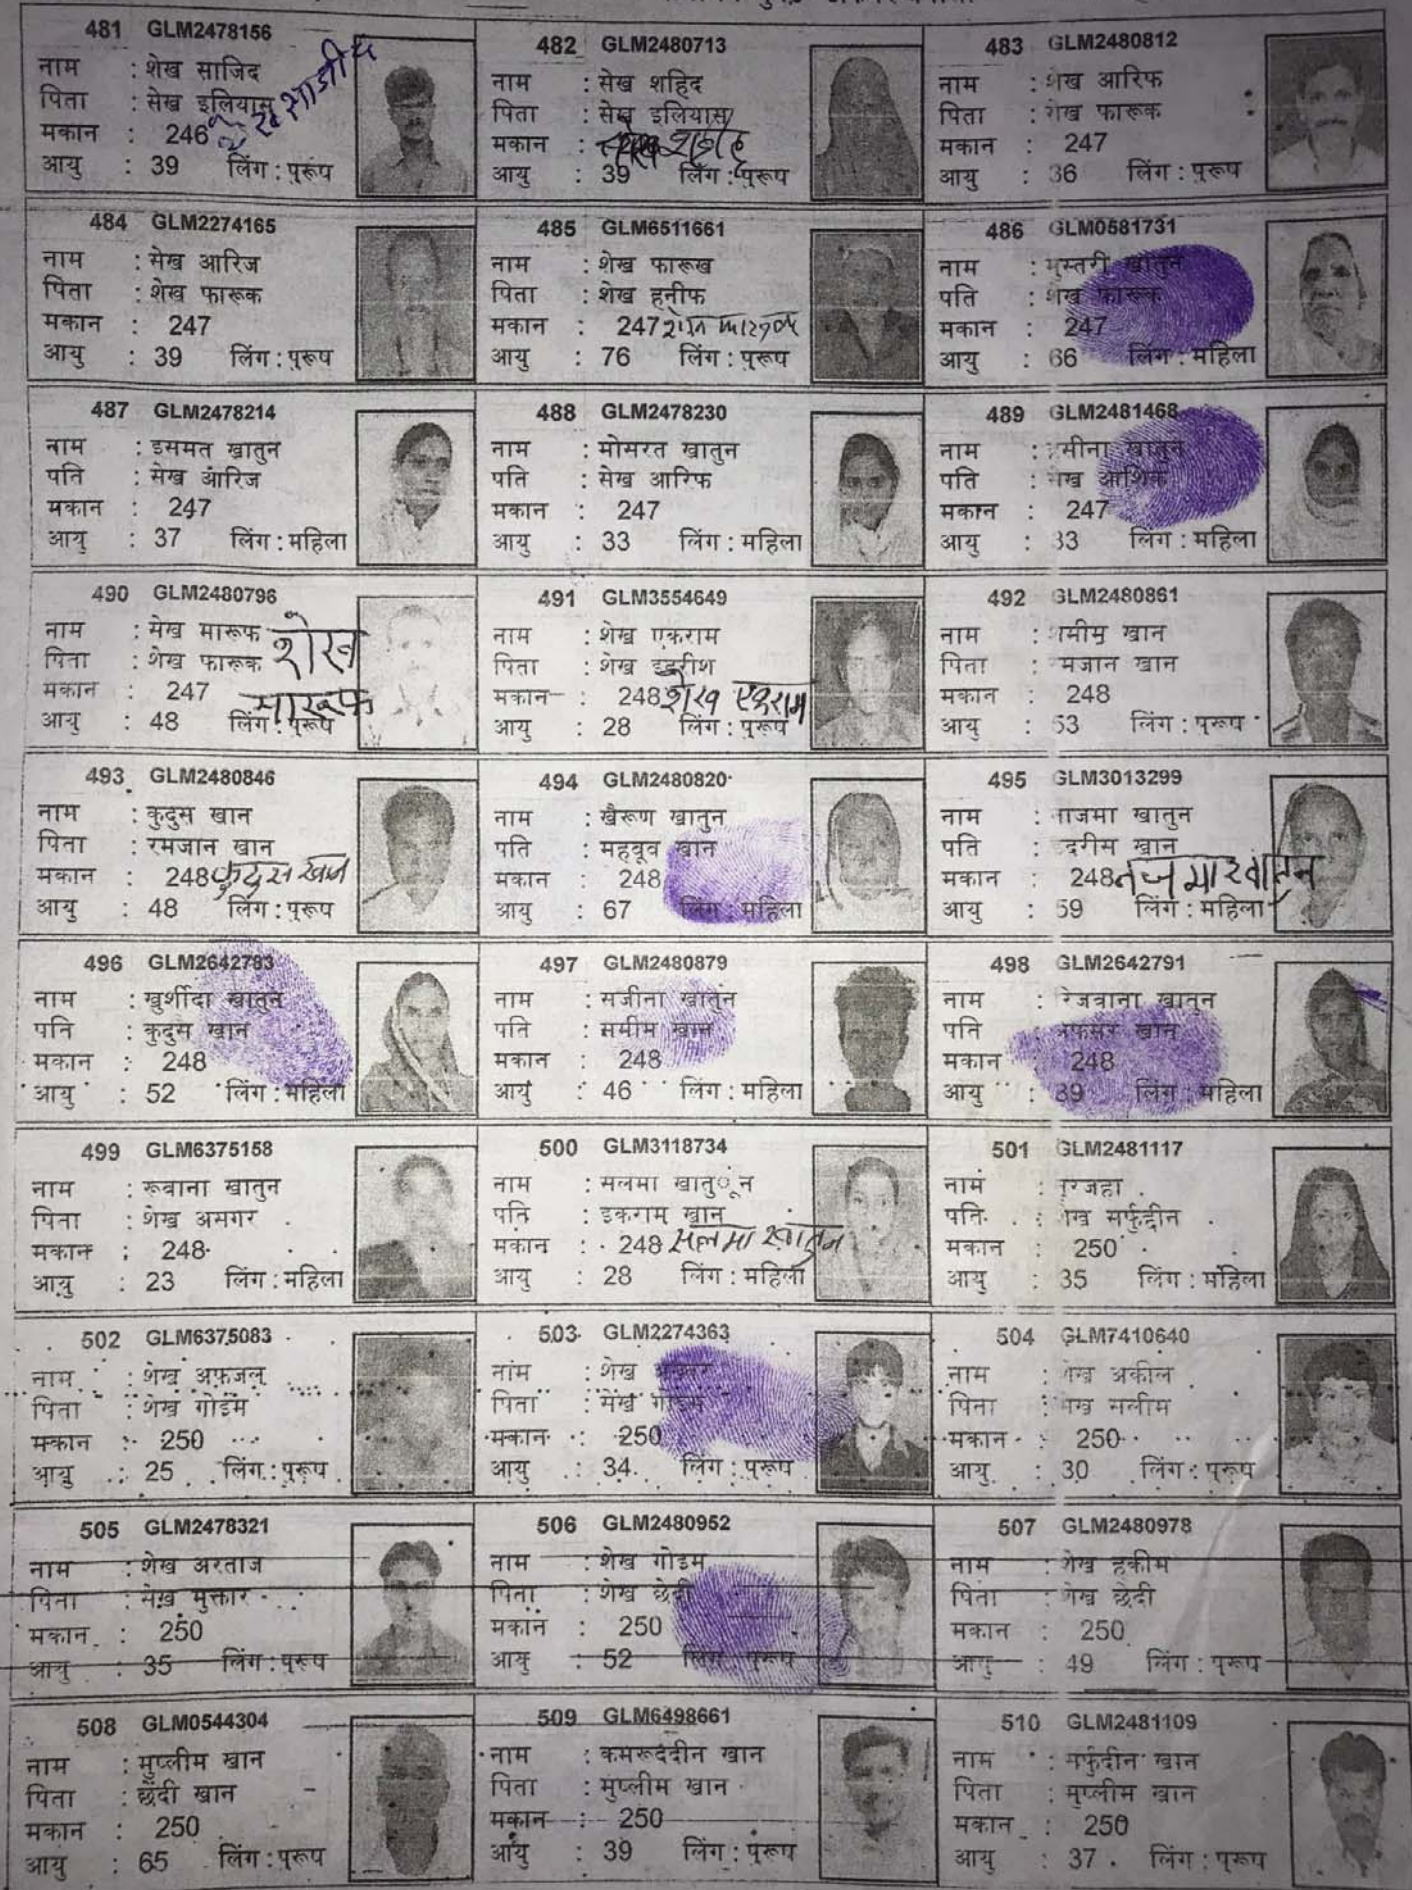 481 GLM2478156
नाम : शेख साजिद
पिता : सेख इलियास
मकान : 246
आयु : 39 लिंग : पुरूष
482 GLM2480713
नाम : सेख शहिद
पिता : सेख इलियास
मकान :
आयु : 39 लिंग : पुरूष
483 GLM2480812
नाम : शेख आरिफ
पिता : शेख फारूक
मकान : 247
आयु : 36 लिंग : पुरूष
484 GLM2274165
नाम : सेख आरिज
पिता : शेख फारूक
मकान : 247
आयु : 39 लिंग : पुरूष
485 GLM6511661
नाम : शेख फारूख
पिता : शेख हनीफ
मकान : 247
आयु : 76 लिंग : पुरूष
486 GLM0581731
नाम : मुस्तरी खातुन
पति : शेख फारूक
मकान : 247
आयु : 66 लिंग : महिला
487 GLM2478214
नाम : इसमत खातुन
पति : सेख आरिज
मकान : 247
आयु : 37 लिंग : महिला
488 GLM2478230
नाम : मोसरत खातुन
पति : सेख आरिफ
मकान : 247
आयु : 33 लिंग : महिला
489 GLM2481468
नाम : खातुन
पति : सेख आशिक
मकान : 247
आयु : 33 लिंग : महिला
490 GLM2480796
नाम : सेख मारूफ शेख
पिता : शेख फारूक
मकान : 247 मारूफ
आयु : 48 लिंग : पुरूष
491 GLM3554649
नाम : शेख एकराम
पिता : शेख इदरीश
मकान : 248 शेख एकराम
आयु : 28 लिंग : पुरूष
492 GLM2480861
नाम : खान
पिता : खान
मकान : 248
आयु : 53 लिंग : पुरूष
493 GLM2480846
नाम : कुदुस खान
पिता : रमजान खान
मकान : 248 कुदुस खान
आयु : 48 लिंग : पुरूष
494 GLM2480820
नाम : खैरूण खातुन
पति : महबूब खान
मकान : 248
आयु : 67 लिंग : महिला
495 GLM3013299
नाम : खातुन
पति : खान
मकान : 248 नजमा खातुन
आयु : 59 लिंग : महिला
496 GLM2642783
नाम : खुर्शीदा खातुन
पति : कुदुस खान
मकान : 248
आयु : 52 लिंग : महिला
497 GLM2480879
नाम : सजीना खातुन
पति : समीम खान
मकान : 248
आयु : 46 लिंग : महिला
498 GLM2642791
नाम : रेजवाना खातुन
पति : खान
मकान : 248
आयु : 39 लिंग : महिला
499 GLM6375158
नाम : रूबाना खातुन
पिता : शेख असगर
मकान : 248
आयु : 23 लिंग : महिला
500 GLM3118734
नाम : सलमा खातु◌ून
पति : इकराम खान
मकान : 248 सलमा खातुन
आयु : 28 लिंग : महिला
501 GLM2481117
नाम :
पति : सर्फुद्दीन
मकान : 250
आयु : 35 लिंग : महिला
502 GLM6375083
नाम : शेख अफ़जल
पिता : शेख गोईम
मकान : 250
आयु : 25 लिंग : पुरूष
503 GLM2274363
नाम : शेख
पिता : सेख गोईम
मकान : 250
आयु : 34 लिंग : पुरूष
504 GLM7410640
नाम : शेख अकील
पिता : सेख सलीम
मकान : 250
आयु : 30 लिंग : पुरूष
505 GLM2478321
नाम : शेख अरताज
पिता : सेख़ मुक्तार
मकान : 250
आयु : 35 लिंग : पुरूष
506 GLM2480952
नाम : शेख गोइम
पिता : शेख छेदी
मकान : 250
आयु : 52 लिंग : पुरूष
507 GLM2480978
नाम : शेख हकीम
पिता : शेख छेदी
मकान : 250
आयु : 49 लिंग : पुरूष
508 GLM0544304
नाम : मुप्लीम खान
पिता : छेदी खान
मकान : 250
आयु : 65 लिंग : पुरूष
509 GLM6498661
नाम : कमरूददीन खान
पिता : मुप्लीम खान
मकान : 250
आयु : 39 लिंग : पुरूष
510 GLM2481109
नाम : सर्फुदीन खान
पिता : मुप्लीम खान
मकान : 250
आयु : 37 लिंग : पुरूष